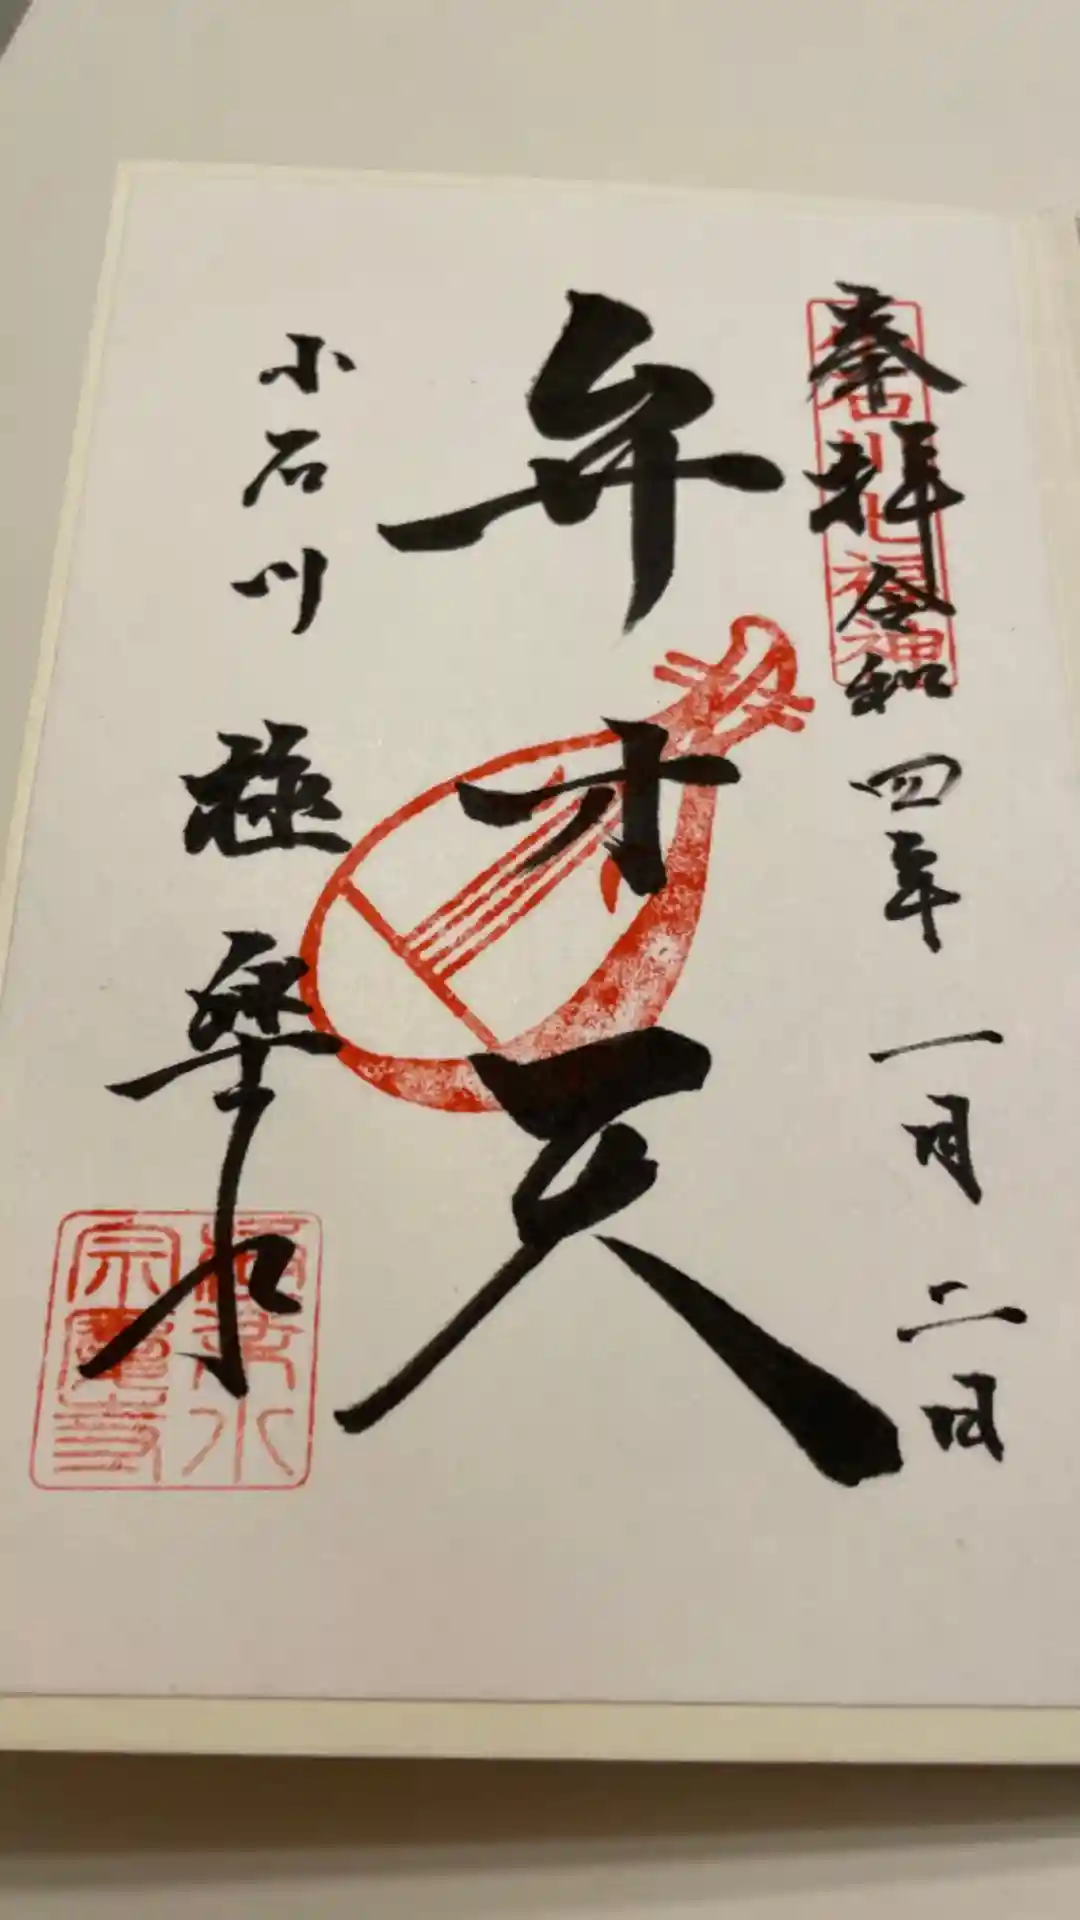 奉拝 令和四年 一月 二日
小石川七福神
弁才天
小石川 極楽水
極楽水
宗慶寺